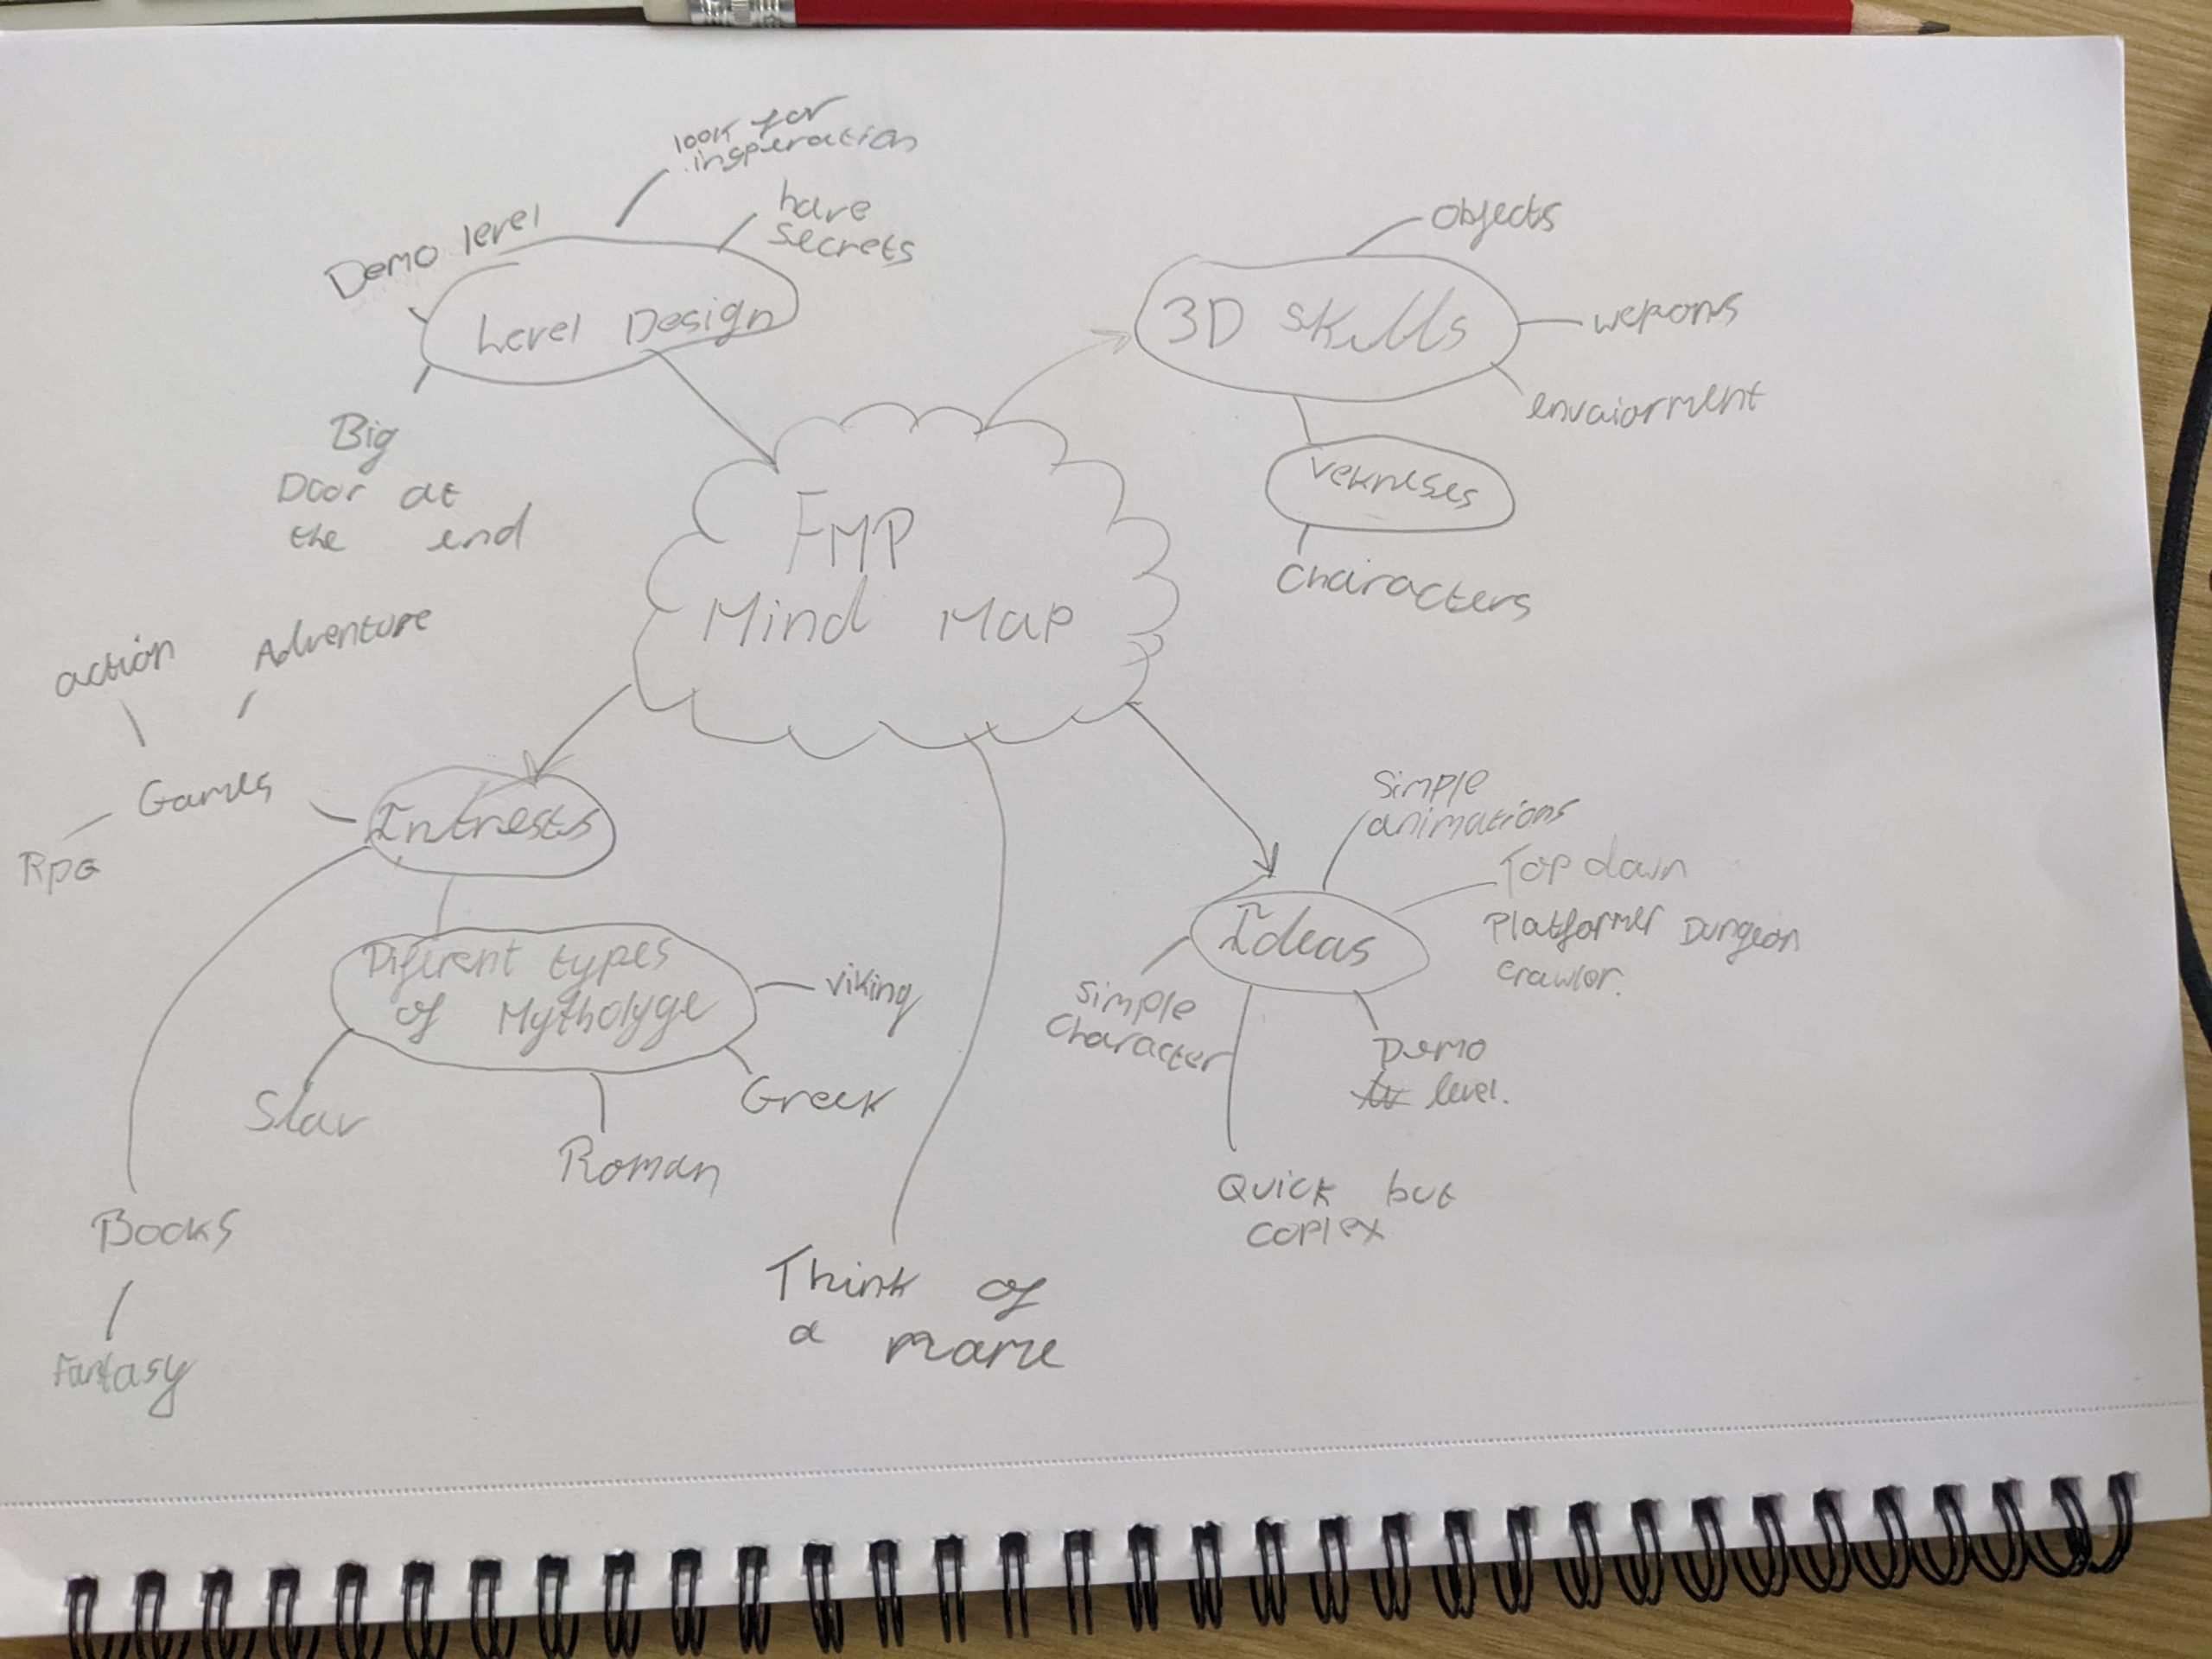 FMP
Mind Map
Level Design
Demo level
look for
insperation
have
secrets
Big
Door at
the end
3D skills
objects
wepons
envaiorment
vekneses
characters
Intrests
Games
action
Adventure
RPG
Difirent types
of Mytholyge
viking
Greek
Roman
Slav
Books
Fantasy
Think of
a name
Ideas
Simple
animations
Top down
Platformer Dungeon
crawler.
Demo
level.
Quick but
coplex
simple
character